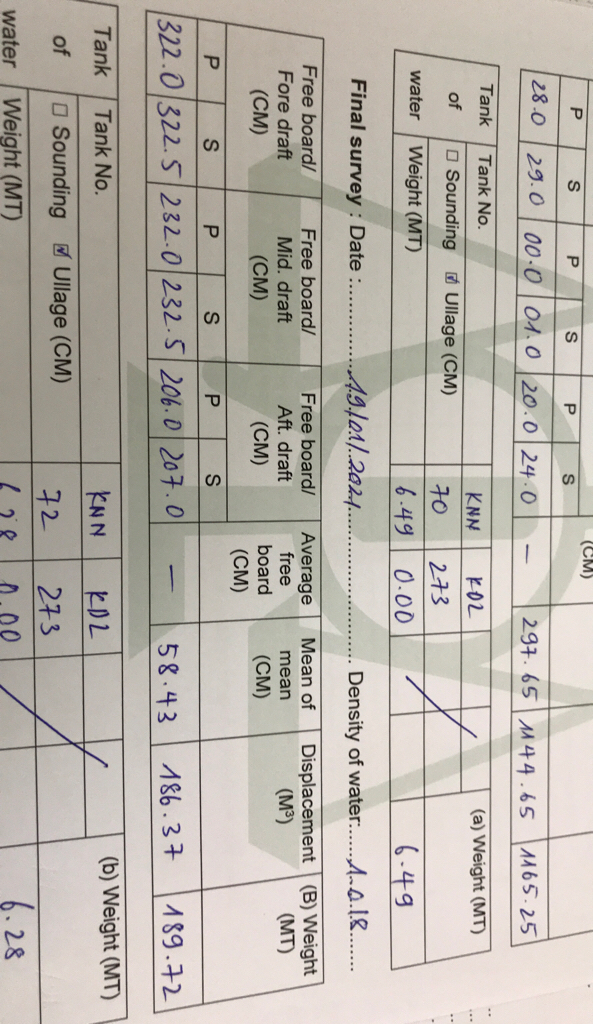 (CM)
P S P S P S
28.0 29.0 00.0 01.0 20.0 24.0 — 297.65 1144.65 1165.25
Tank of water
Tank No. KNN KDL (a) Weight (MT)
☐ Sounding ☑ Ullage (CM) 70 273
Weight (MT) 6.49 0.00 6.49
Final survey : Date : 19/01/2021 Density of water: 1.018
Free board/ Fore draft (CM) Free board/ Mid. draft (CM) Free board/ Aft. draft (CM) Average free board (CM) Mean of mean (CM) Displacement (M³) (B) Weight (MT)
P S P S P S
322.0 322.5 232.0 232.5 206.0 207.0 — 58.43 186.37 189.72
Tank of water
Tank No. KNN KDL (b) Weight (MT)
☐ Sounding ☑ Ullage (CM) 72 273
Weight (MT) 6.28 0.00 6.28